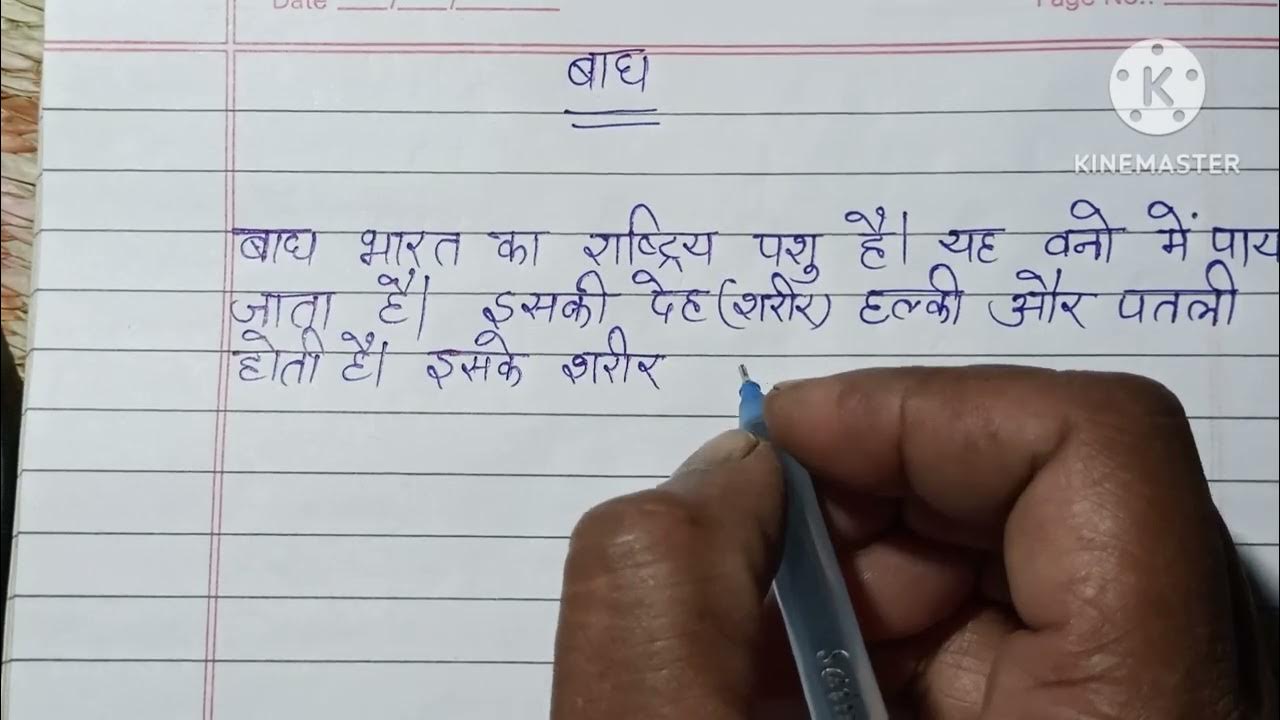 Date ___/___/______ Page No.: ________
KINEMASTER
बाघ
बाघ भारत का राष्ट्रिय पशु है। यह वनो में पाय
जाता है। इसकी देह (शरीर) हल्की और पतली
होती है। इसके शरीर